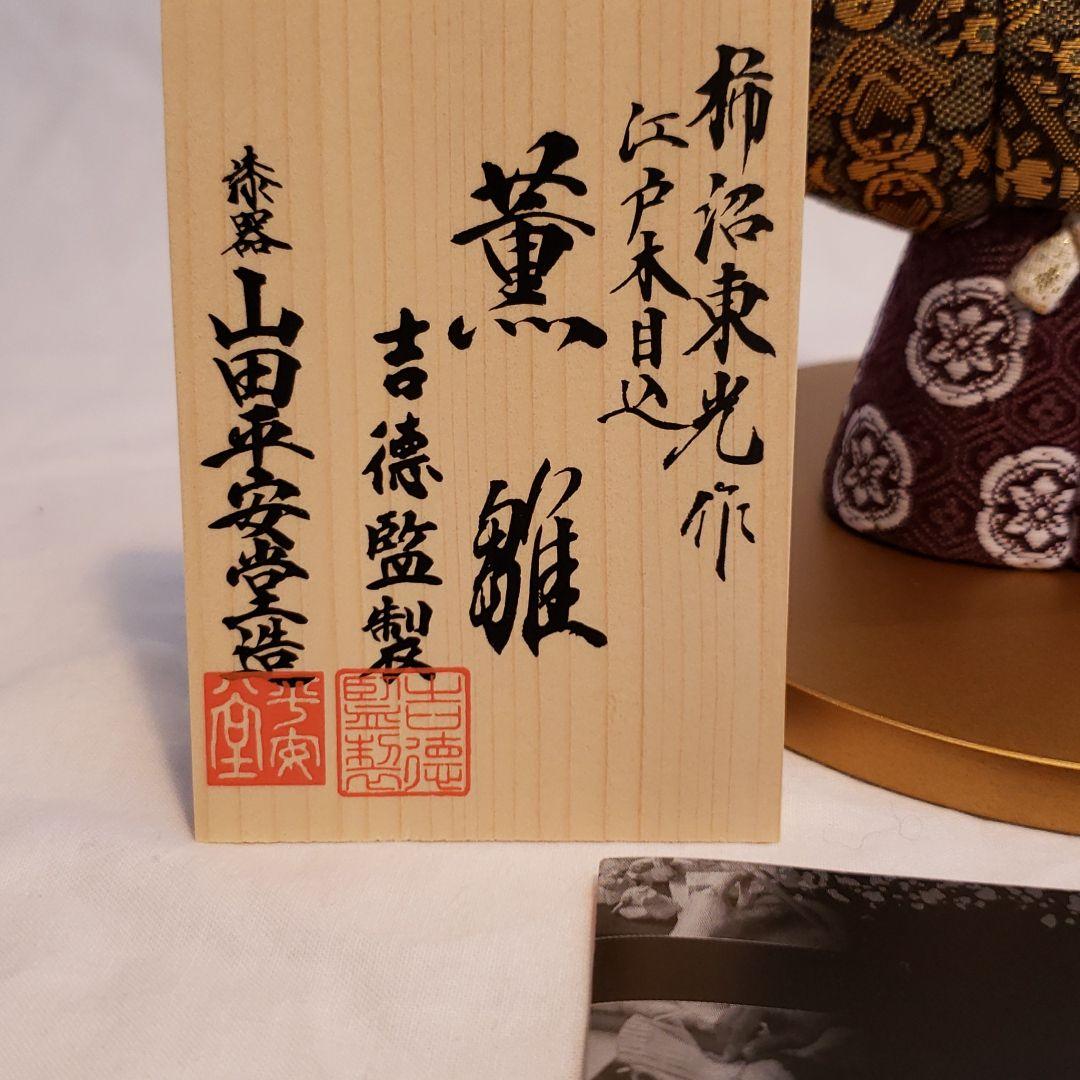 柿沼東光作
江戸木目込
薫雛
吉德監製
漆器
山田平安堂造
吉德監製
平安堂